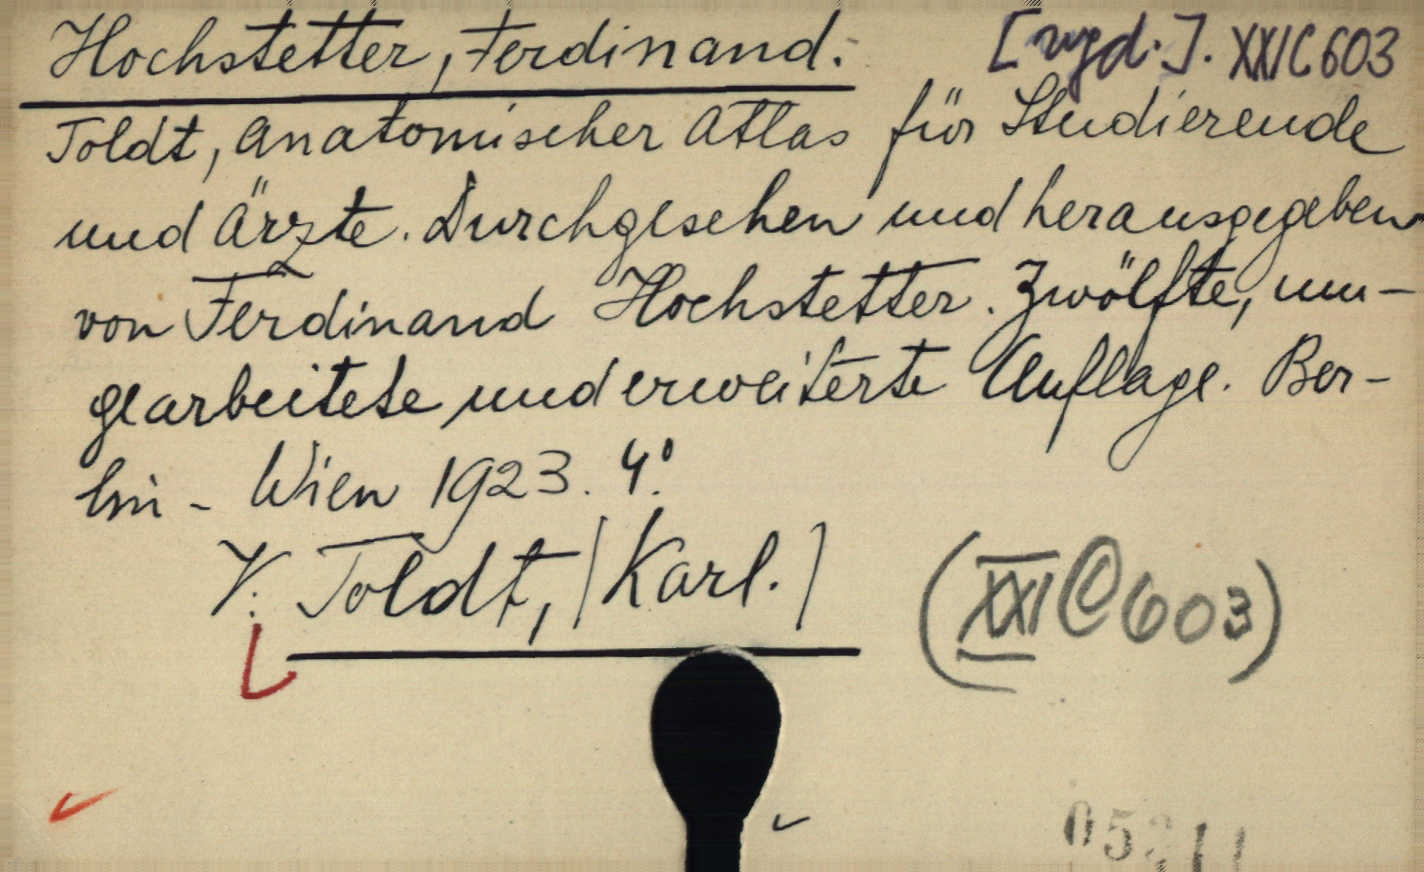 Hochstetter, Ferdinand. [wyd.]. XXI C 603
Toldt, Anatomischer Atlas für Studierende
und Ärzte. Durchgesehen und herausgegeben
von Ferdinand Hochstetter. Zwölfte, um-
gearbeitete und erweiterte Auflage. Ber-
lin - Wien 1923. 4°.
V: Toldt, /Karl./
(XXI C 603)